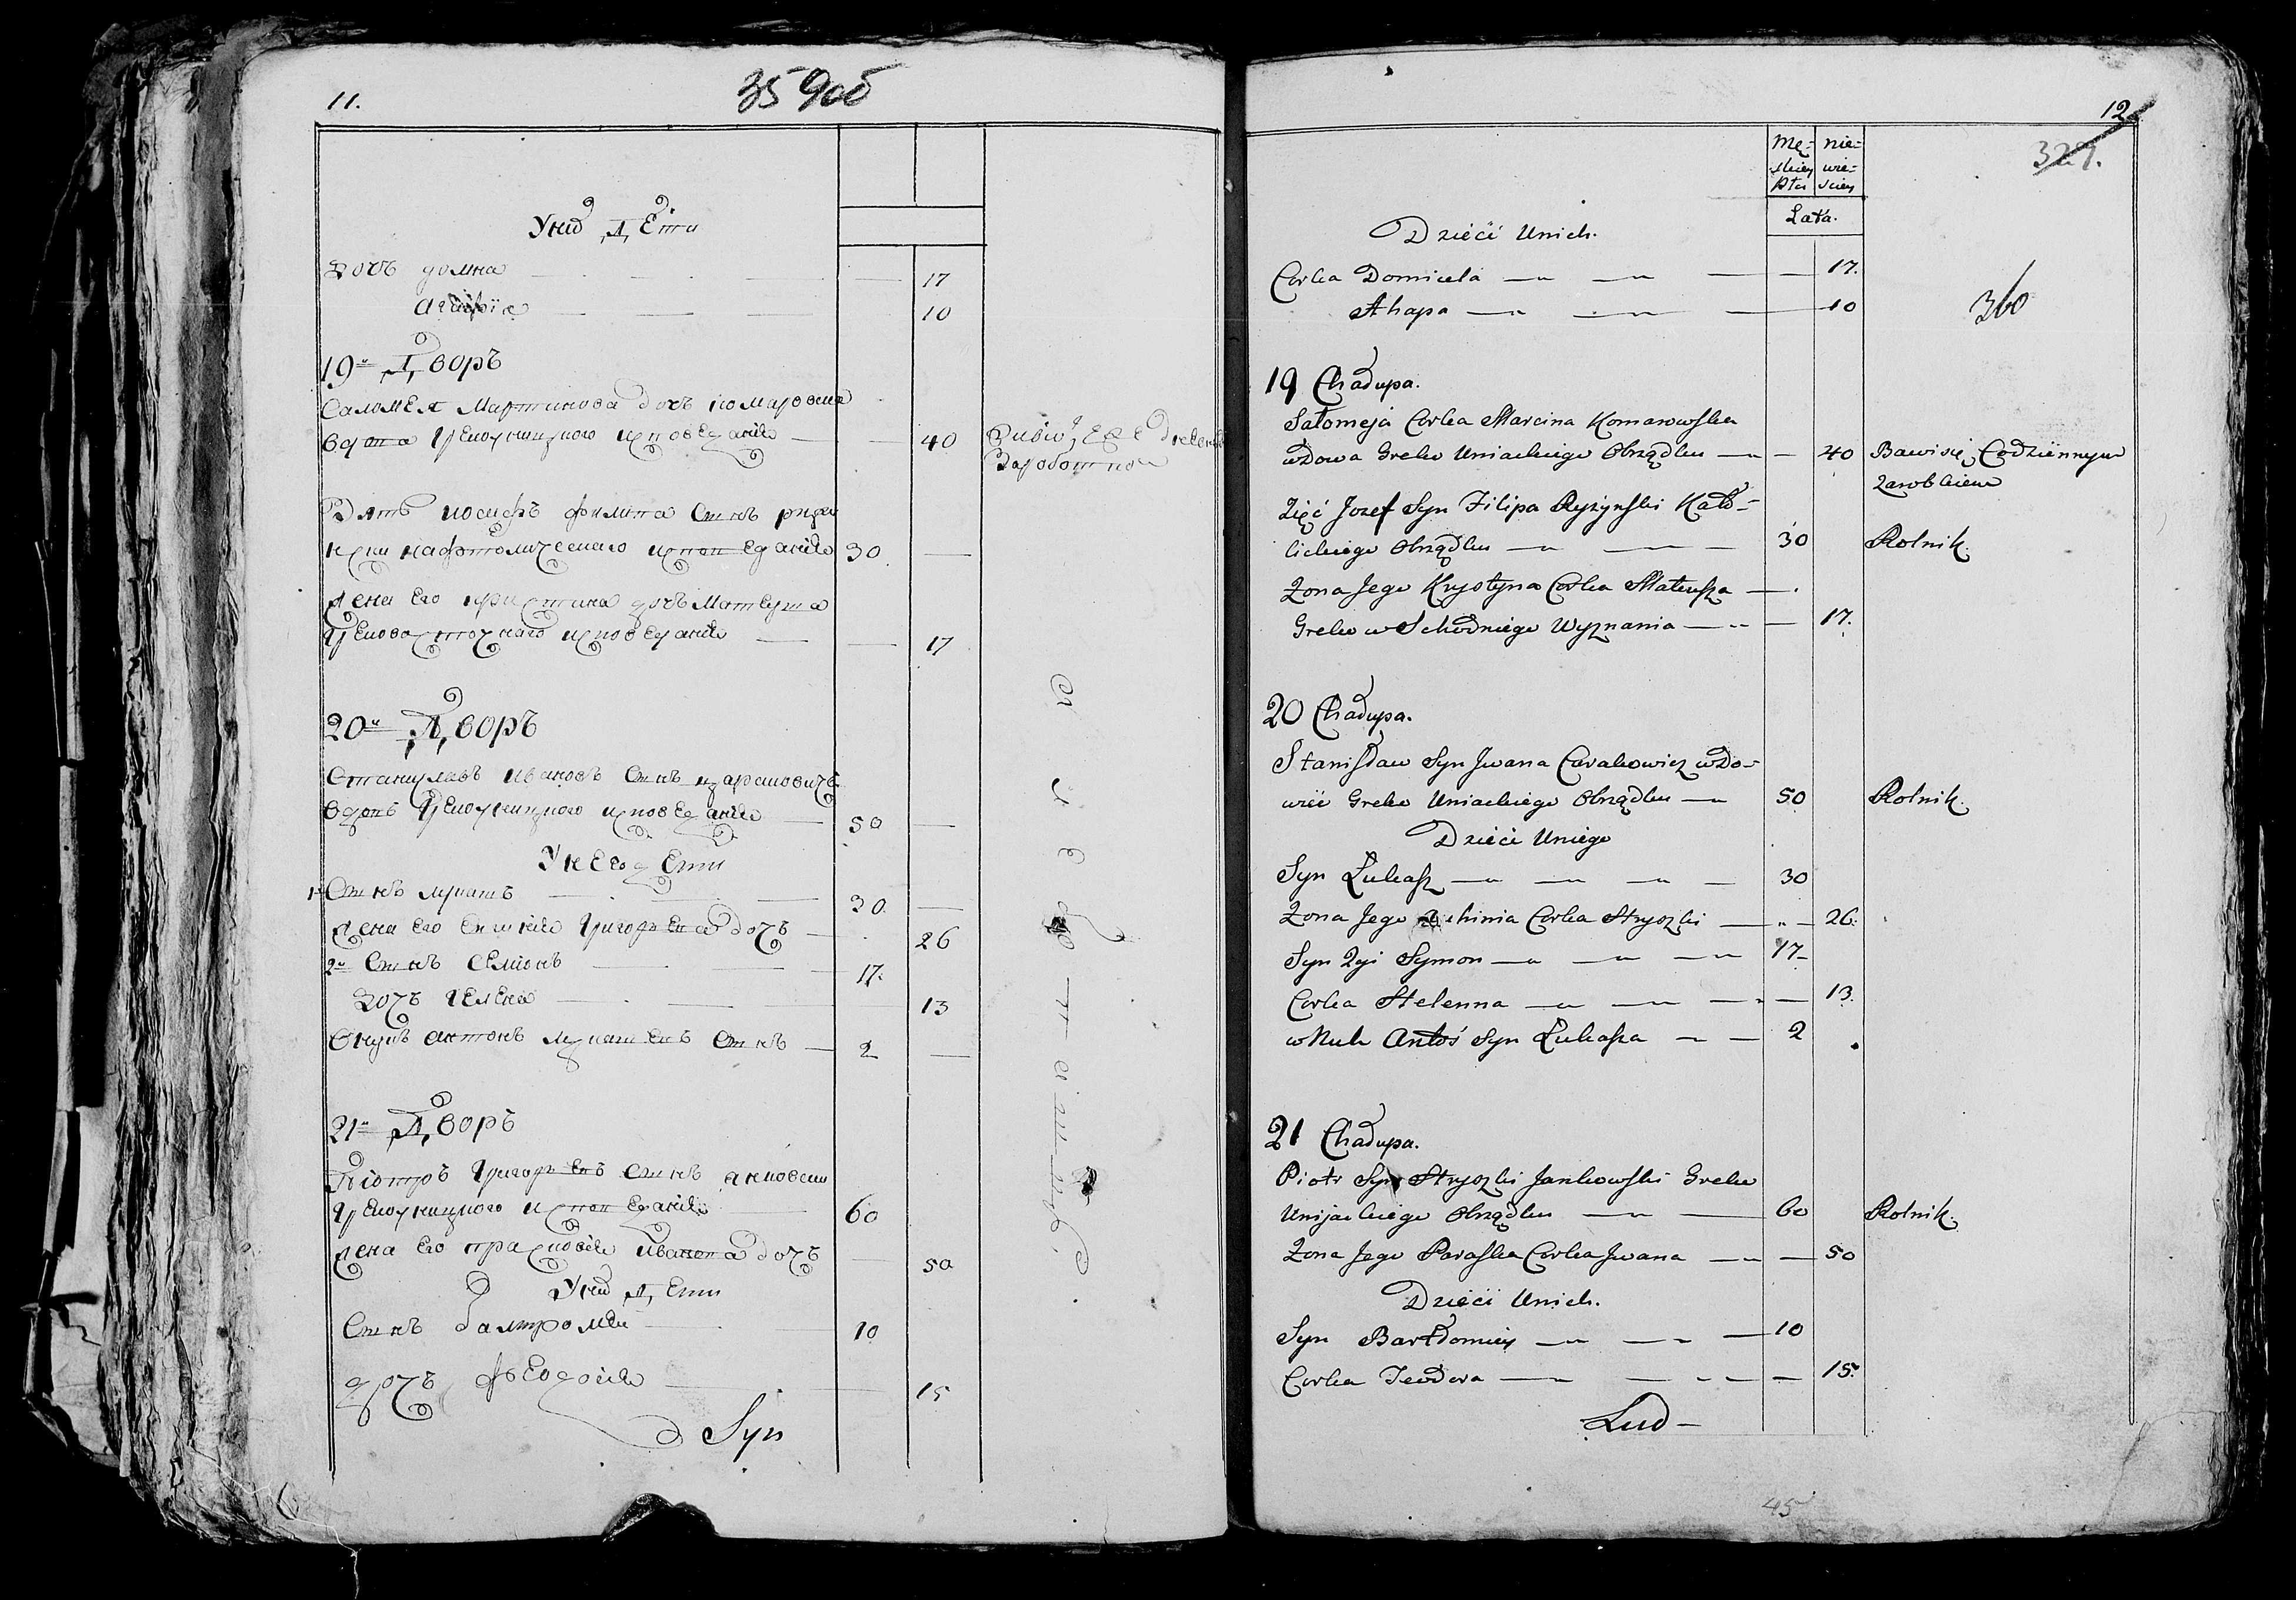 11.
359 об
Унихъ Дети
Дочъ домна — 17
Агафія — 10
19й Дворъ
Саломея Мартинова дочъ комаровска
вдова Грекоуницкого исповеданія — 40
Зять иосифъ филипа синъ
кафтолическаго исповеданія 30 —
Жена его христина дочъ Матвуша
Грековосточнаго исповеданія — 17
20й Дворъ
Станиславъ ивановъ синъ
вдовъ Грекоуницкого исповеданія — 50 —
У него дети
1й Синъ лукашъ — 30 —
Жена его Григорьева дочъ — 26
2й Синъ семіонъ — 17.
Дочъ Гелена — 13
Внукъ антонъ лукашевъ синъ — 2 —
21й Дворъ
Піотръ Григорьевъ синъ янковски
Грекоуницкого исповеданія 60
Жена его прасковія иванова дочъ — 50
Унихъ Дети
Синъ балтромей — 10
дочъ феодосія — 15
Syn
12
329.
Mę= nie=
skiey wie=
płci sciey
Lata.
Dzieci Unich.
Corka Domicela — 17.
Ahapa — 10
360
19 Chałupa.
Salomeja Corka Marcina Komarowska
wdowa Greko Uniackiego Obrządku — 40 Bawi się Codziennym
Zarobkiem
Zięć Jozef Syn Filipa Ryżynski Kato=
lickiego Obrządku — 30 Rolnik.
Zona Jego Krystyna Corka Mateusza —
Greko w Schodniego Wyznania — 17.
20 Chałupa.
Stanisław Syn Jwana Carakowicz wdo=
wiec Greko Uniackiego Obrządku — 50 Rolnik.
Dzieci Uniego
Syn Łukasz — 30
Zona Jego Corka Hryszki — 26.
Syn 2gi Symon — 17 —
Corka Helenna — 13.
wNuk Antoś Syn Łukasza — 2
21 Chałupa.
Piotr Syn Hryszki Jankowski Greko
Unijackiego Obrządku — 60 Rolnik.
Zona Jego Paraska Corka Jwana — 50
Dzieci Unich.
Syn Bartłomiey — 10
Corka Teodora — 15.
Lud —
45